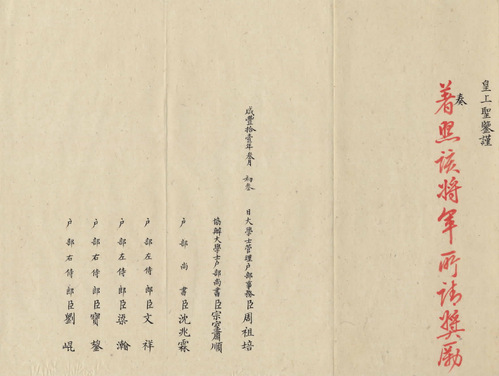 皇上聖鑒謹
奏
著照該將軍所請奬勵
咸豐拾壹年叁月初叁日大學士管理戶部事務臣周祖培
協辦大學士戶部尚書臣宗室肅順
戶部尚書臣沈兆霖
戶部左侍郎臣文祥
戶部左侍郎臣梁瀚
戶部右侍郎臣寶鋆
戶部右侍郎臣劉崐